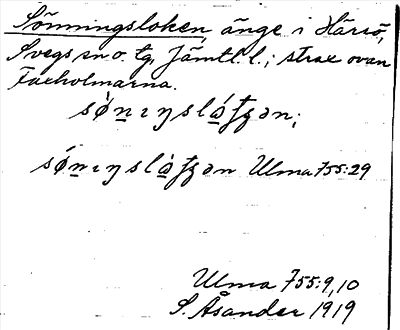 Sönningsloken, änge i Härrö,
Svegs sn o. tg, Jämtl. l.; strax ovan
Faxholmarna.
Ulma 755:29
Ulma 755:9,10
S. Åsander 1919